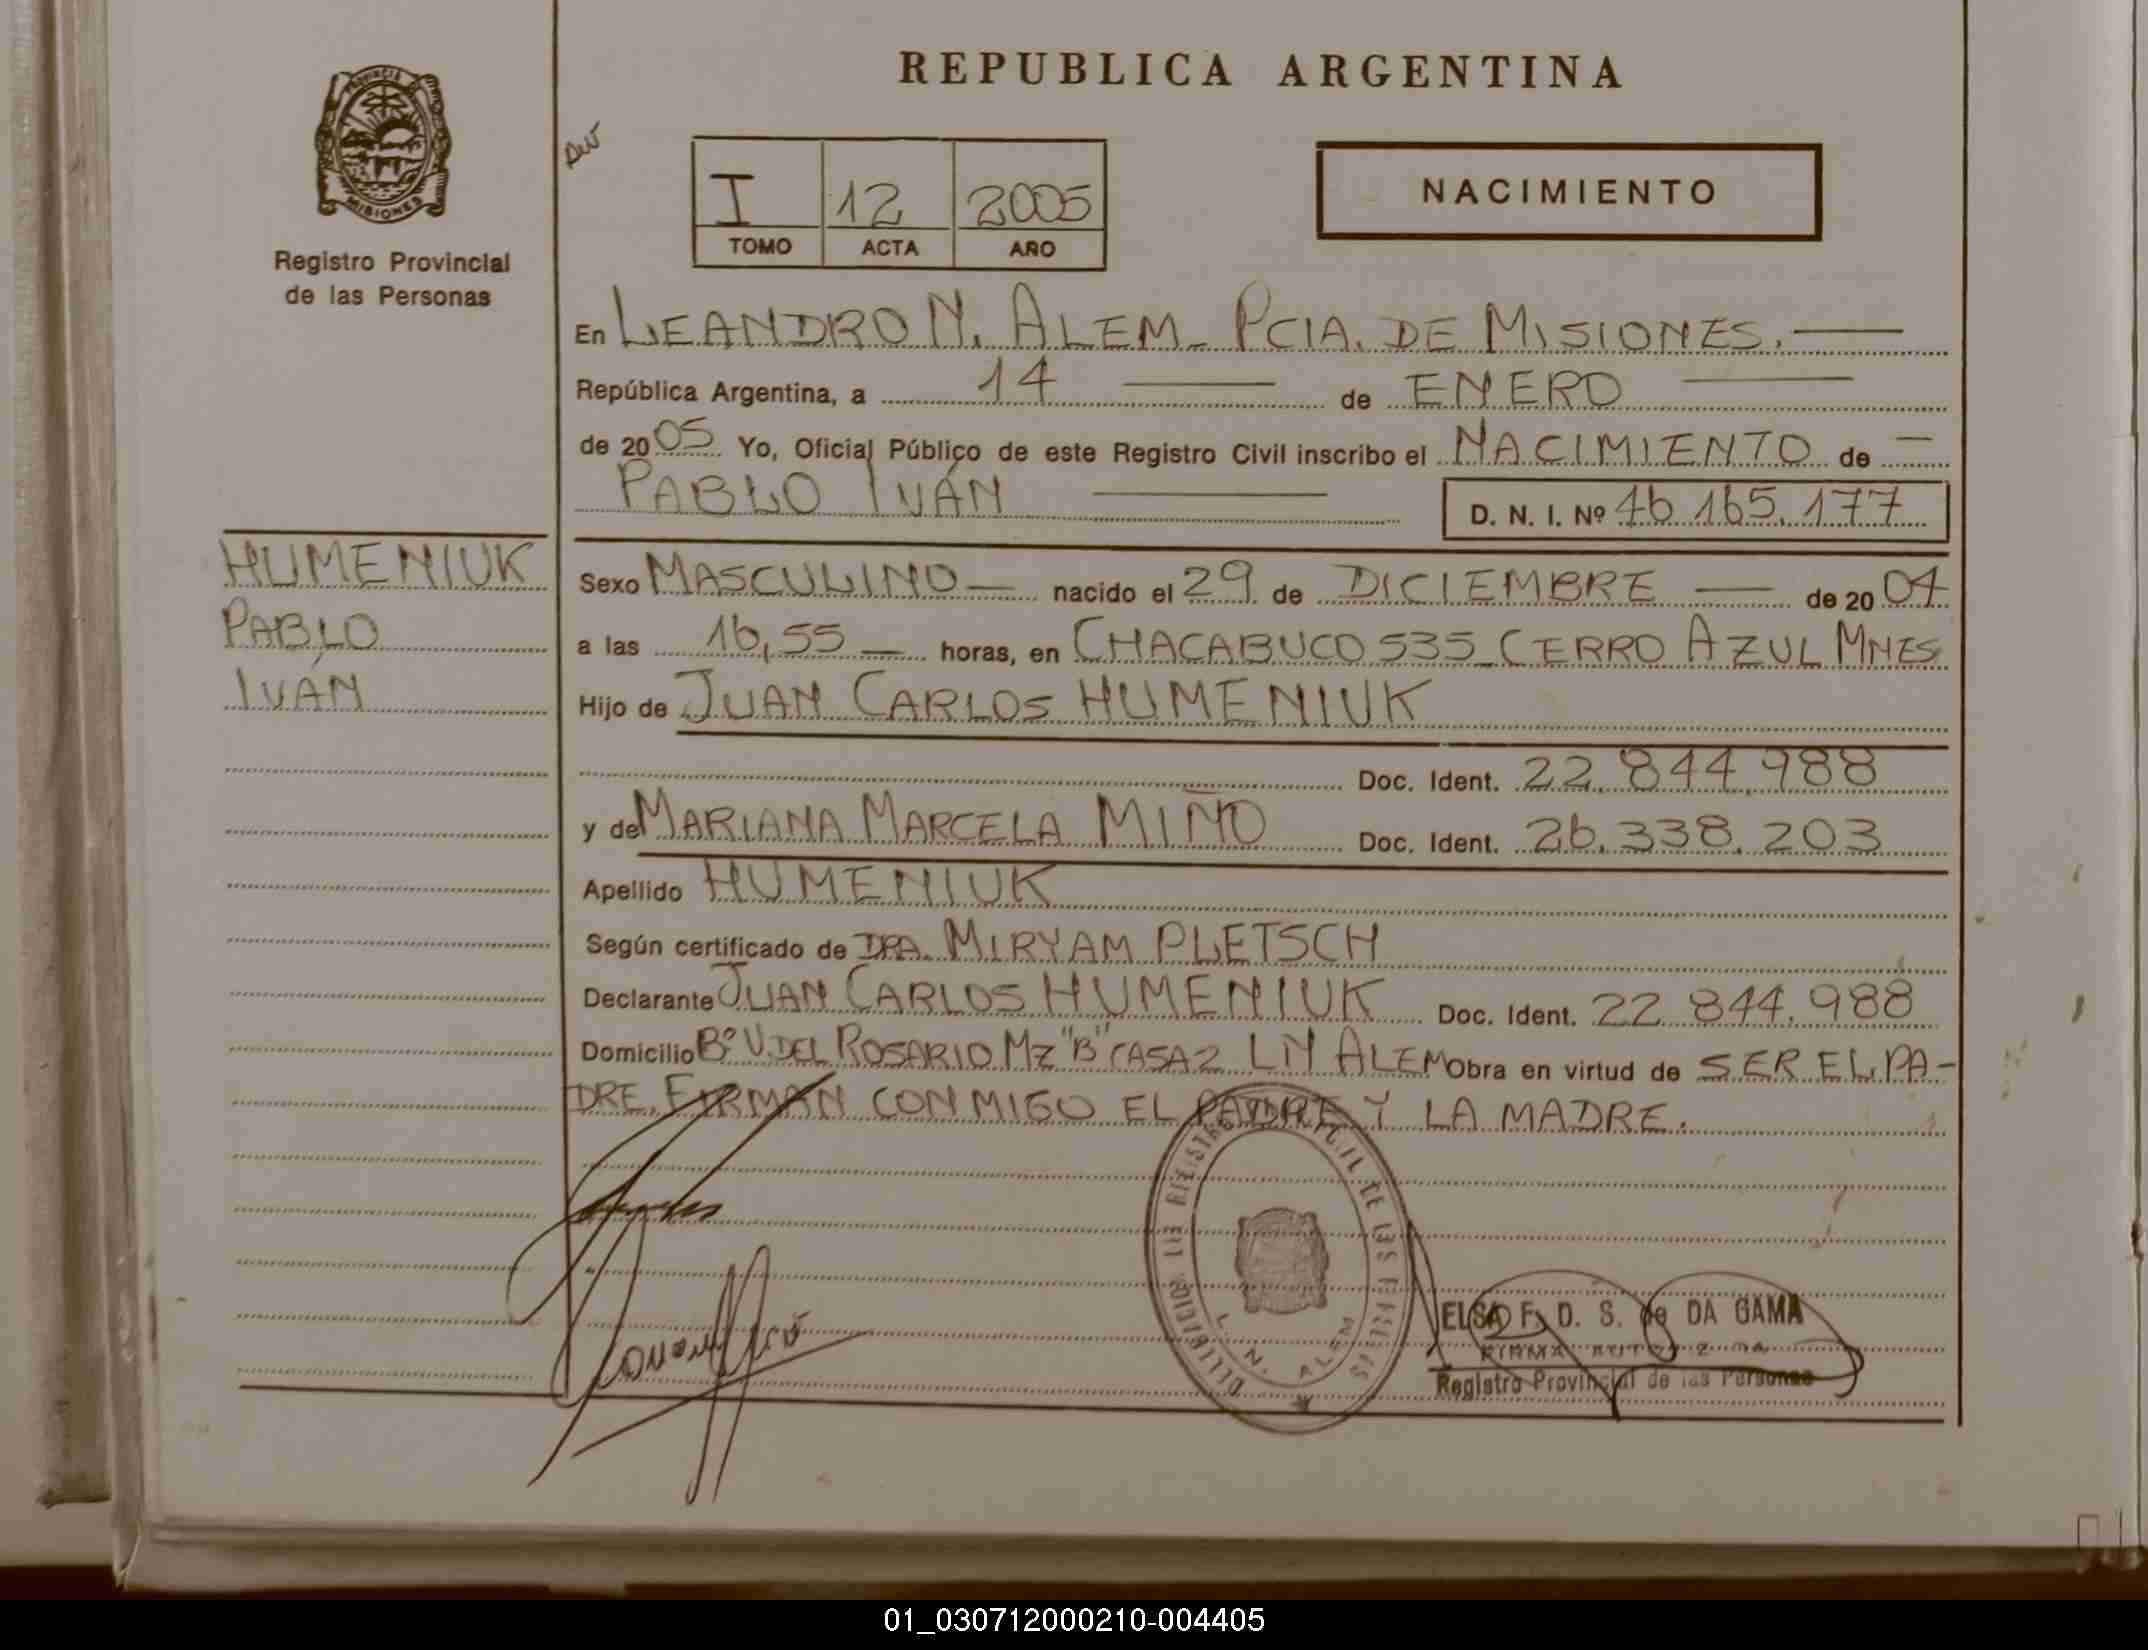 REPUBLICA ARGENTINA
PROVINCIA
MISIONES
Registro Provincial
de las Personas
I 12 2005
TOMO ACTA AÑO
NACIMIENTO
En LEANDRO N. ALEM - PCIA. DE MISIONES.
República Argentina, a 14 de ENERO
de 2005 Yo, Oficial Público de este Registro Civil inscribo el NACIMIENTO de
PABLO IVÁN D. N. I. Nº 46.165.177
HUMENIUK
PABLO
IVÁN
Sexo MASCULINO nacido el 29 de DICIEMBRE de 2004
a las 16,55 horas, en CHACABUCO 535 CERRO AZUL MNES
Hijo de JUAN CARLOS HUMENIUK
Doc. Ident. 22.844.988
y de MARIANA MARCELA MIÑO Doc. Ident. 26.338.203
Apellido HUMENIUK
Según certificado de DRA. MIRYAM PLETSCH
Declarante JUAN CARLOS HUMENIUK Doc. Ident. 22.844.988
Domicilio Bº V. DEL ROSARIO MZ "B" CASA 2 LN ALEM Obra en virtud de SER EL PA-
DRE. FIRMAN CONMIGO EL PADRE Y LA MADRE.
L. N. ALEM
ELSA F. D. S. de DA GAMA
Registro Provincial de las Personas
01_030712000210-004405